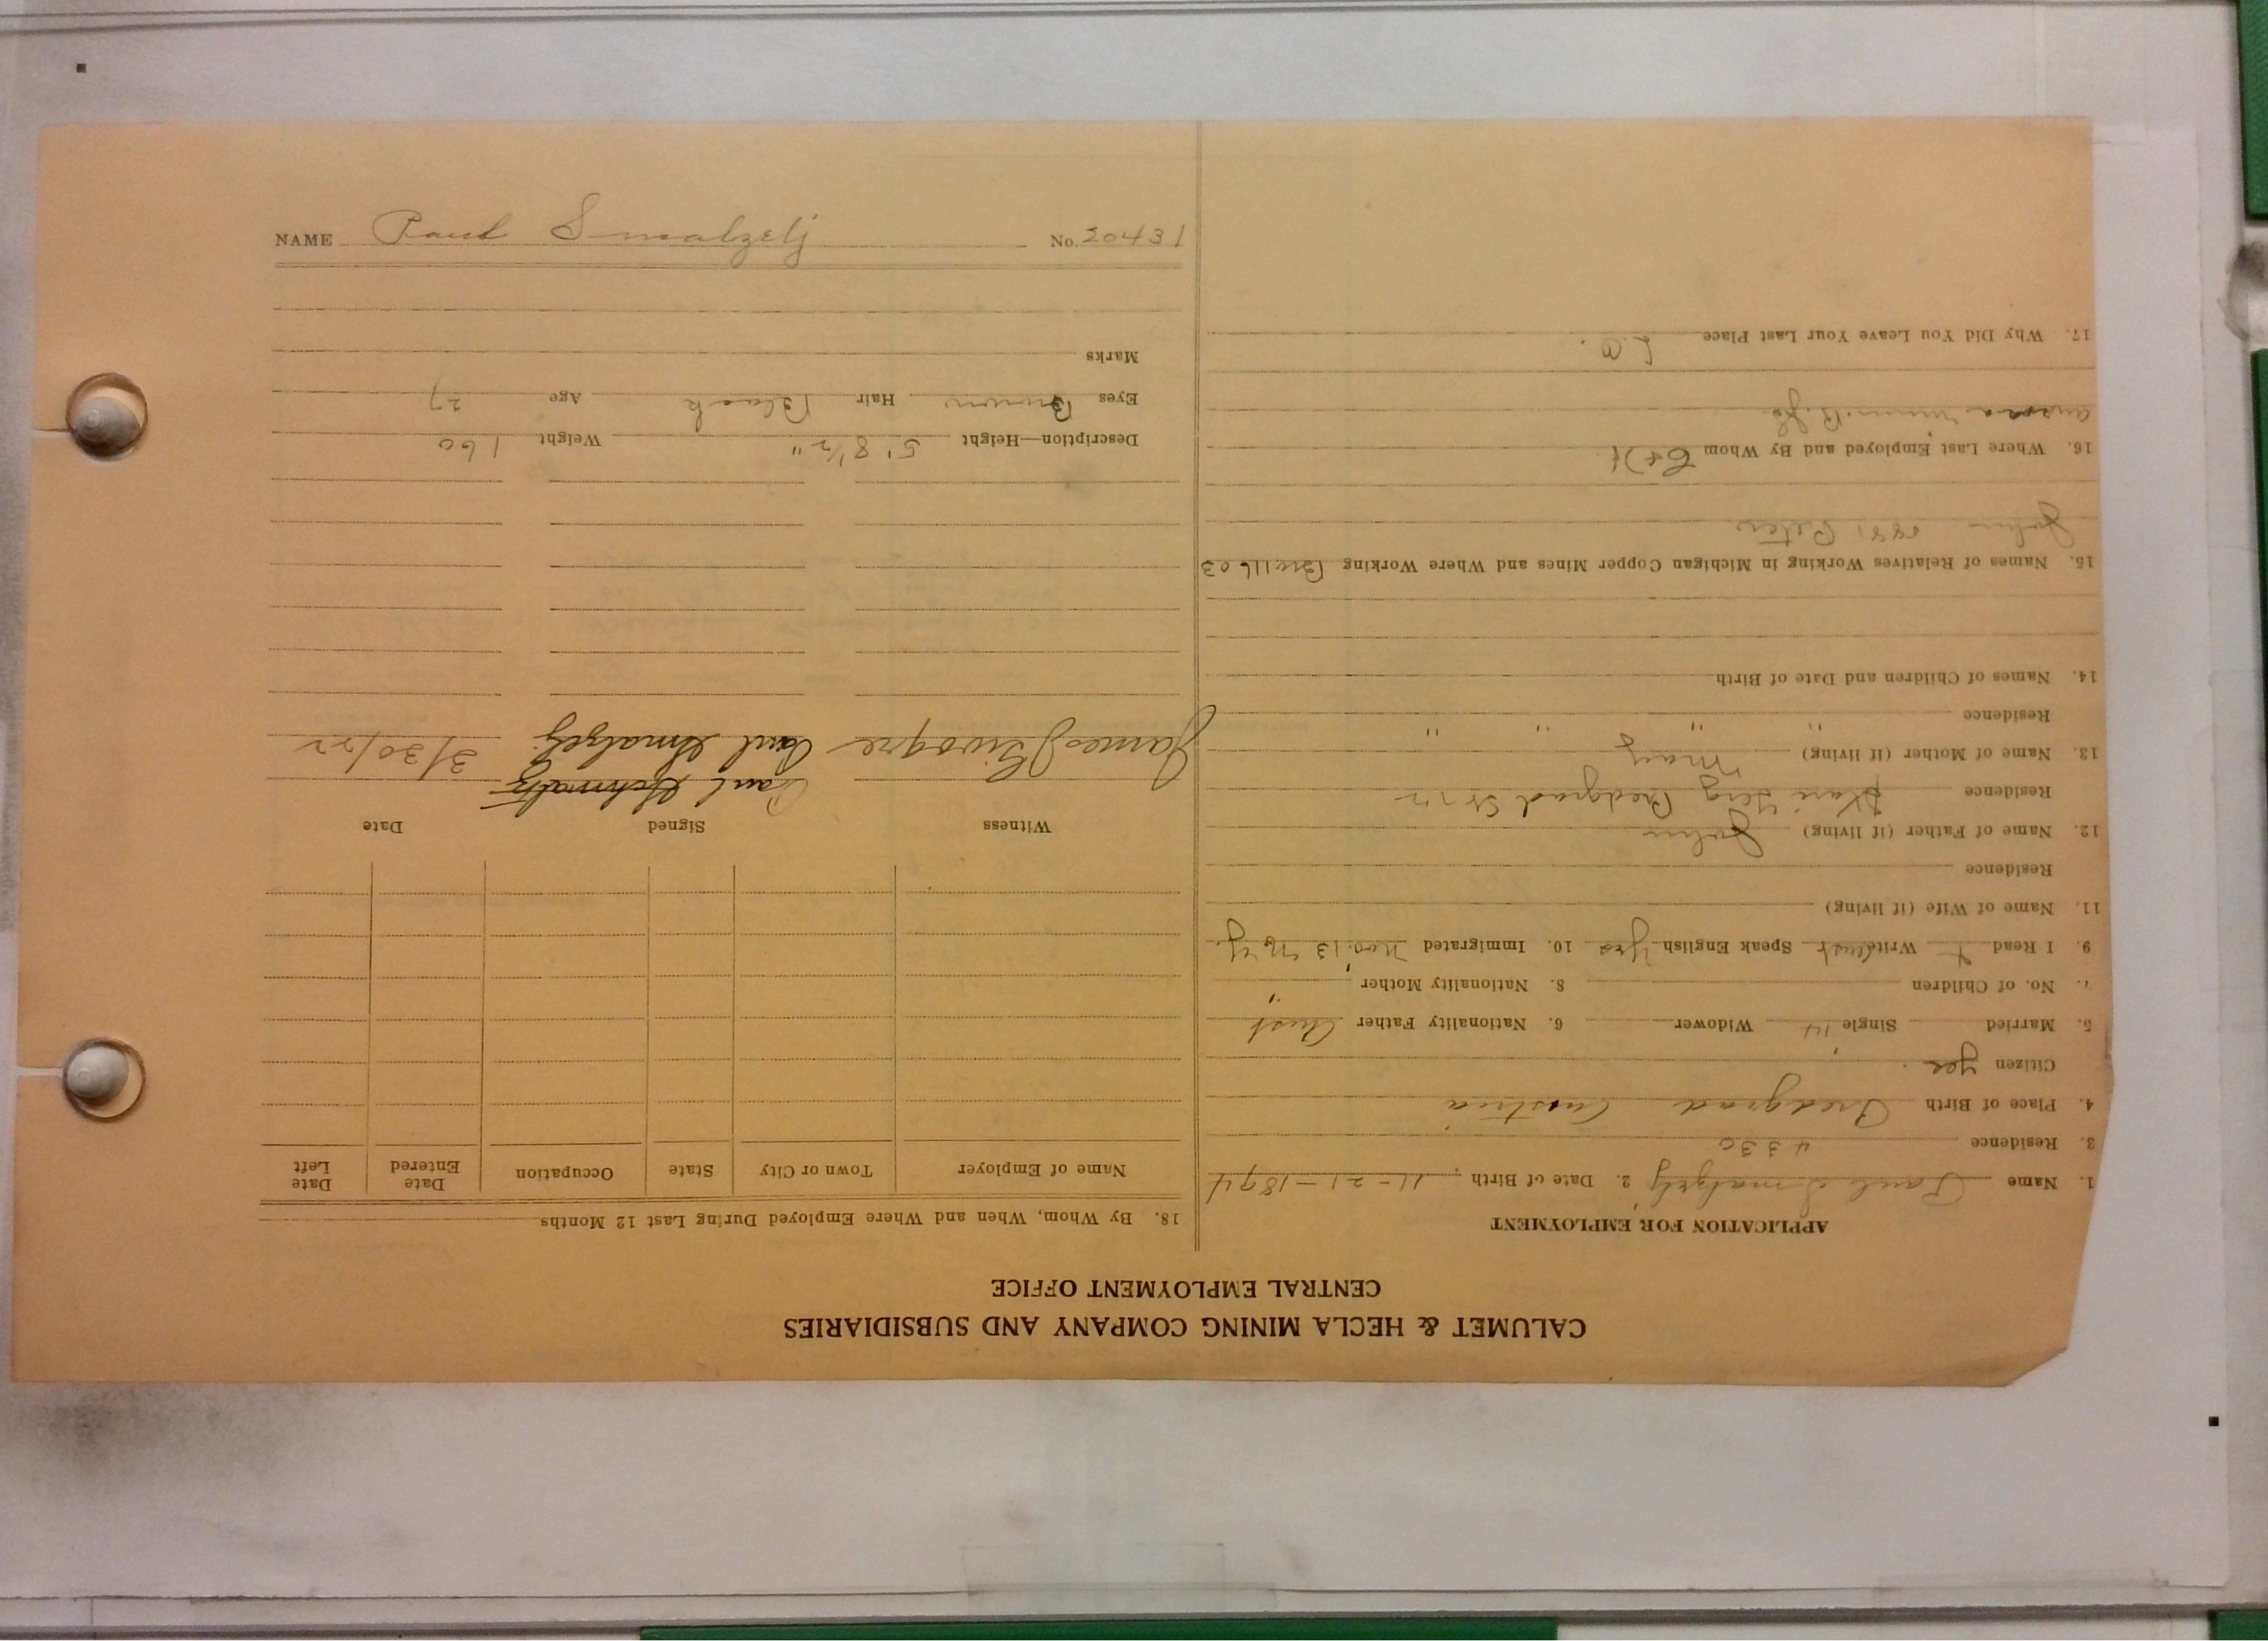 CALUMET & HECLA MINING COMPANY AND SUBSIDIARIES
CENTRAL EMPLOYMENT OFFICE
APPLICATION FOR EMPLOYMENT
1. Name Paul Smalzelj 2. Date of Birth 11-21-1894
3. Residence 4330
4. Place of Birth Predgrad Austria
Citizen Yes
5. Married Single Widower 6. Nationality Father Aust
No. of Children 8. Nationality Mother "
9. I Read + Write Aust Speak English Yes 10. Immigrated Nov. 13 N.Y.
11. Name of Wife (if living)
Residence
12. Name of Father (if living) John
Residence Stari Terg Predgrad
13. Name of Mother (if living) Mary
Residence " " " "
14. Names of Children and Date of Birth
15. Names of Relatives Working in Michigan Copper Mines and Where Working Bro 11603
John Peter
16. Where Last Employed and By Whom C+H
Aurora Minn.
17. Why Did You Leave Your Last Place L.O.
18. By Whom, When and Where Employed During Last 12 Months
Name of Employer Town or City State Occupation Date Entered Date Left
Witness Signed Date
Paul Schmaltz
James Paul Smalzelj 3/30/22
Description—Height 5' 8 1/2" Weight 160
Eyes Brown Hair Black Age 27
Marks
NAME Paul Smalzelj No. 20431